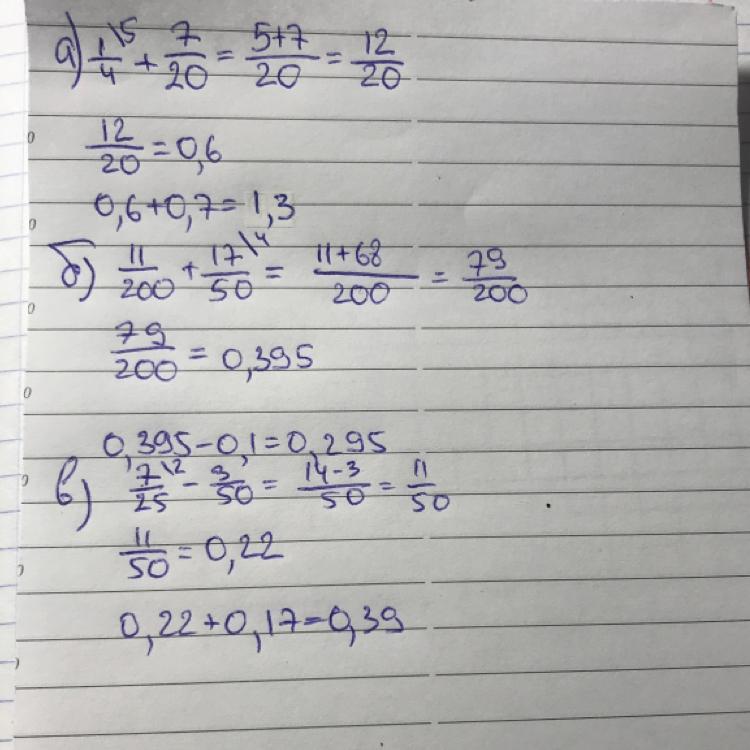 а) 1/4 \5 + 7/20 = 5+7/20 = 12/20
12/20 = 0,6
0,6+0,7=1,3
б) 11/200 + 17/50 \4 = 11+68/200 = 79/200
79/200 = 0,395
0,395-0,1=0,295
в) 7/25 \2 - 3/50 = 14-3/50 = 11/50
11/50 = 0,22
0,22+0,17=0,39